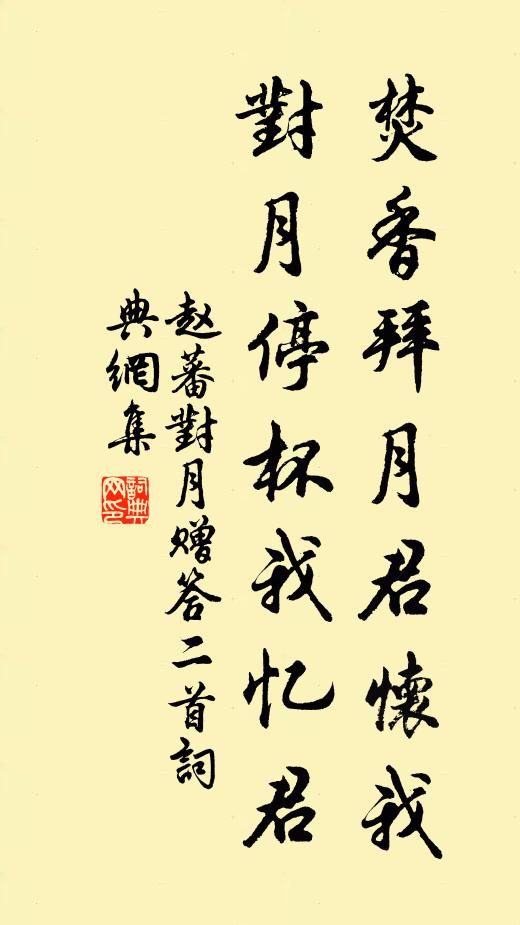 焚香拜月君懷我
對月停杯我忆君
赵蕃對月赠答二首詞
典網集
詞典网印